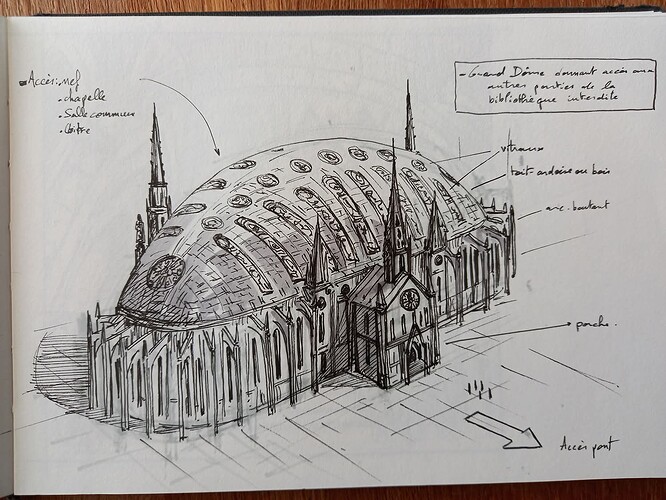 - Accès: nef
. chapelle
. Salle commune
. Cloître
- Grand Dôme donnant accès aux
autres parties de la
bibliothèque interdite
vitraux
toit ardoise ou bois
arc-boutant
porche.
Accès pont